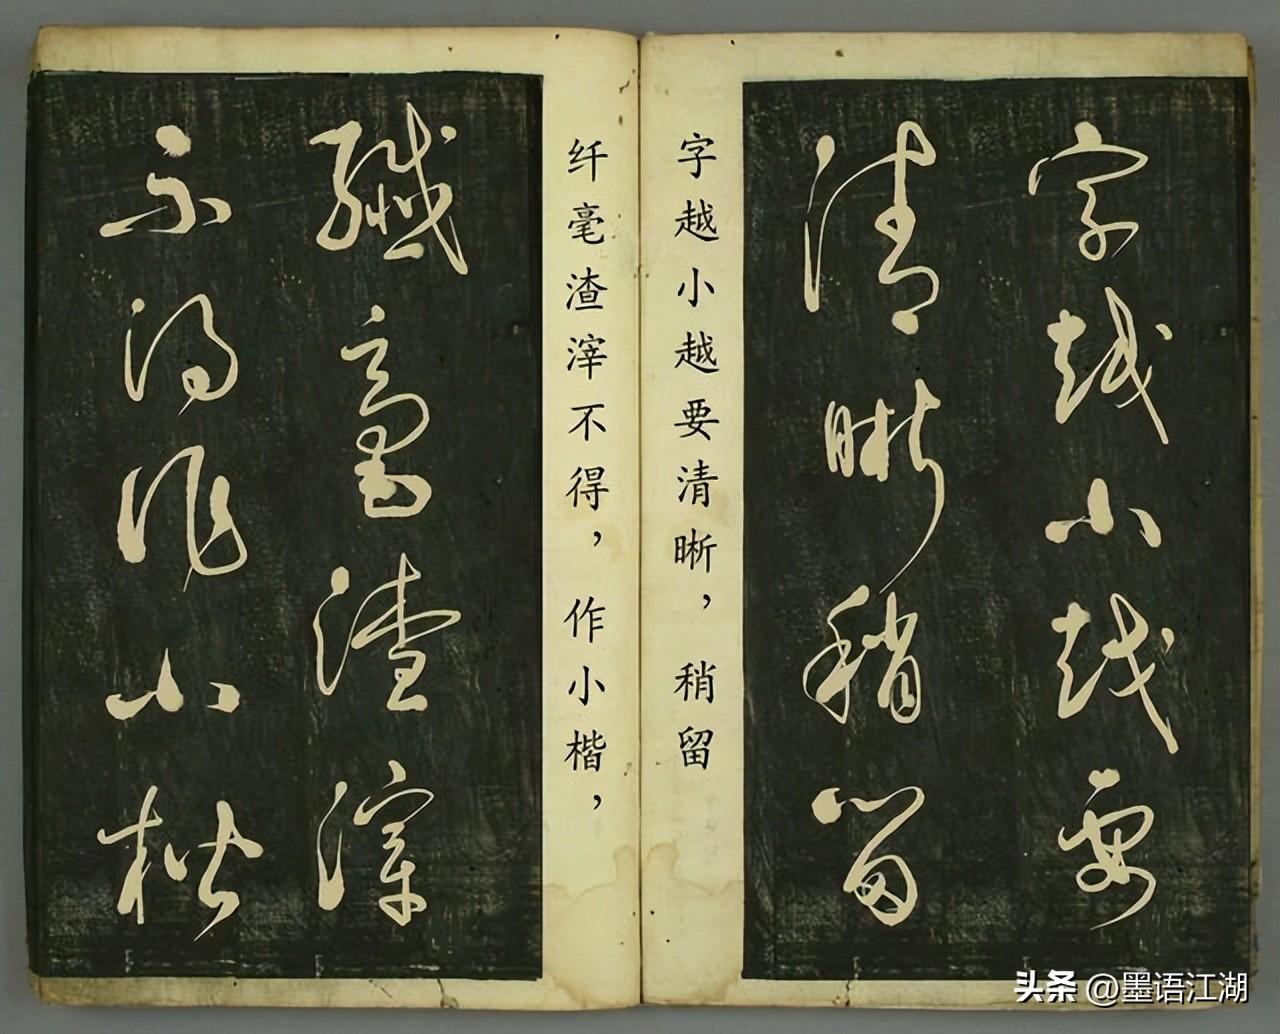 字越小越要
清晰稍留
字越小越要清晰，稍留
纤毫渣滓不得，作小楷，
纖毫渣滓
不得作小楷
头条 @墨语江湖